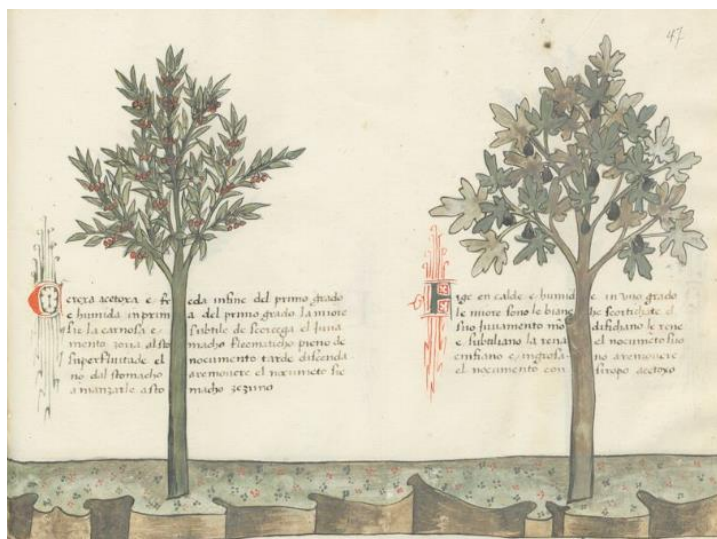 47
Cerexa acetoxa e freda infine del primo grado
e humida inprima del primo grado la miore
sie la carnosa e subtile de scorcega el juva
mento zova al stomacho flecmaticho pieno de
superfluitade el nocumento tarde discenda
no dal stomacho a remouere el nocumēto sie
a manzarle a stomacho zezuno
Fige en calde e humide in uno grado
le miore sono le bianche scortichate el
suo iuuamento mō difichano le rene
e subtiliano la rena el nocumēto suo
enfiano e ingrosano a remouere
el nocumento con siropo acetoxo